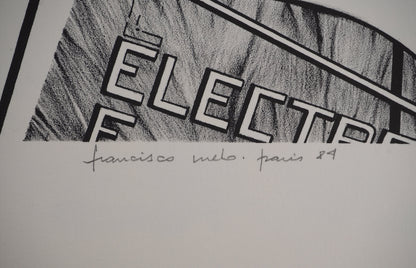 ÉLECTR
F
francisco melo. paris 84